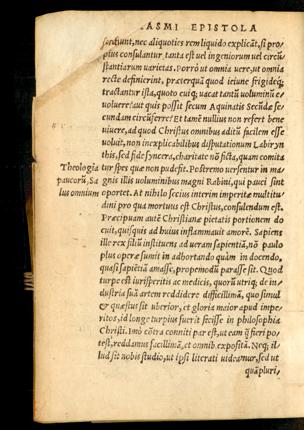 ASMI EPISTOLA
sciẽdunt, nec aliquoties rem liquido explicãt, si pro
pius consulantur, tanta est uel ingeniorum uel circũ
stantiarum uarietas. Porrò ut omnia uere, ut omnia
recte definierint, præterquã quod ieiune frigideq;
tractantur ista, quoto cuiq; uacat tantũ uoluminũ e
uoluere? aut quis possit secum Aquinatis Secũdæ se
cundam circũferre? Et tamẽ nullius non refert bene
uiuere, ad quod Christus omnibus aditũ facilem esse
uoluit, non inexplicabilibus disputationum Labiryn
this, sed fide syncera, charitate nõ ficta, quam comita
Theologia tur spes quæ non pudefit. Postremo uersentur in ma
paucorũ, Sa gnis illis uoluminibus magni Rabini, qui pauci sint
lus omnium oportet. At nihilo secius interim imperitæ multitu
dini pro qua mortuus est Christus, consulendum est.
Præcipuam autẽ Christianæ pietatis portionem do
cuit, quisquis ad huius inflammauit amorẽ. Sapiens
ille rex filiũ instituens ad ueram sapientiã, nõ paulo
plus operæ sumit in adhortando quàm in docendo,
quasi sapiẽtiã amasse, propemodũ parasse sit. Quod
turpe est iurisperitis ac medicis, quorũ utriq; de in-
dustria suã artem reddidere difficillimã, quo simul
& quæstus sit uberior, et gloria maior apud imperi
tos, id longe turpius fuerit fecisse in philosophia
Christi. Imò cõtra conniti par est, ut eam q̃ fieri po
test, reddamus facillimã, et omnib. expositã. Neq; il
lud sit nobis studio, ut ipsi literati uideamur, sed ut
quàmpluri,